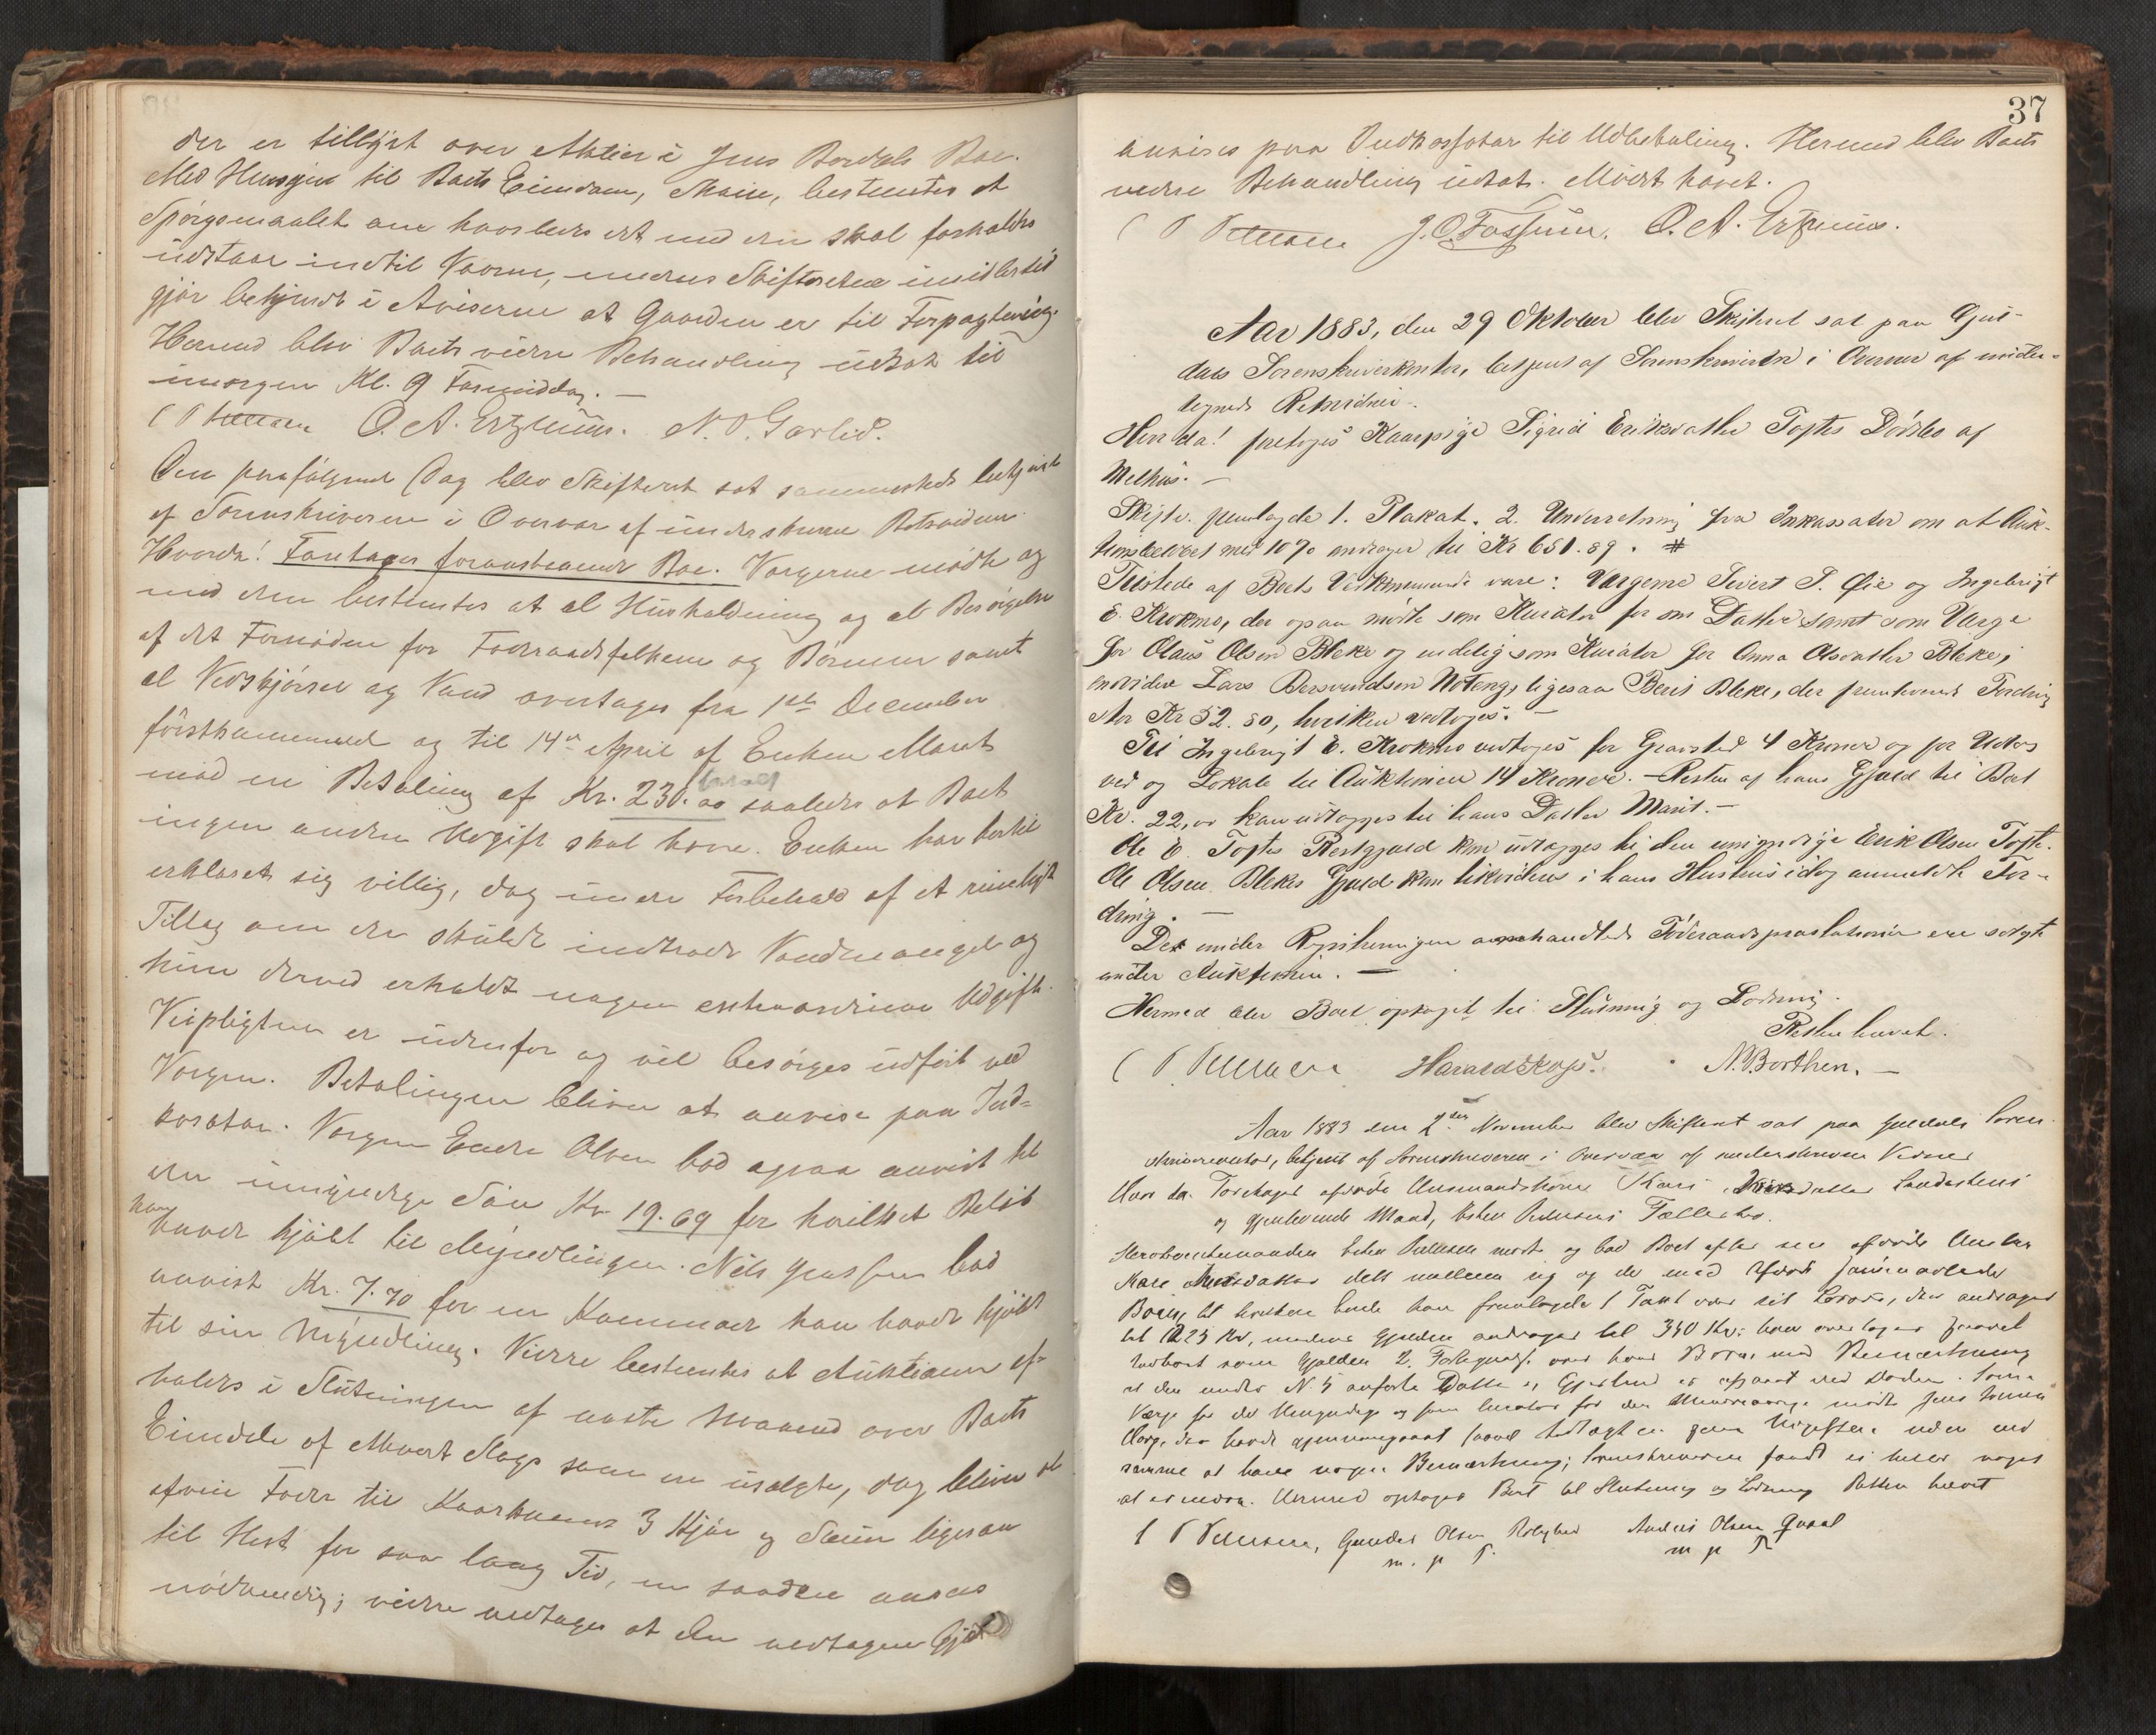 der er tillyst over Aktier i Jens Bordals Boe.
Med Hensyn til Boets Eiendom, Moen, bestemtes at
Spørgsmaalet om hvorledes det med den skal forholdes
udstaar indtil Vaaren, medens Skifteretten imidlertid
gjør bekjendt i Aviserne at Gaarden er til Forpagtning.
Hermed blev Boets videre Behandling udsat til
imorgen Kl. 9 Formiddag. —
O. A. Ertzgaas. N. O. Garlid.
Den paafølgende Dag blev Skifteret sat sammesteds betjent
af Sorenskriveren i Overvær af underskrevne Retsvidner
Hvorda! Foretages foranstaaende Boe. Værgerne mødte og
med dem bestemtes at al Husholdning og al Besørgelse
af det Fornødne for Foderaadsfolkene og Børnene samt
al Vedskjørsel og Vand overtages fra 1ste December
førstkommende og til 14de April af Enken Marit
mod en Betaling af Kr. 230.00 saaledes at Boet
ingen anden Udgift skal have. Enken har hertil
erklæret sig villig, dog under Forbehold af et rimeligt
Tillæg om der skulde indtræde Vandmangel og
hun derved erholdt nogen extraordinær Udgift.
Veipligten er udenfor og vil besørges udført ved
Værgen. Betalingen bliver at anvise paa Ind-
kassator. Værgen Endre Olsen bad ogsaa anvist til
den umyndige Søn Kr. 19.69 for hvilket Beløb
han
havde kjøbt til Myndlingen. Nils Jenssen bad
anvist Kr. 7.70 for en Kommode han havde kjøbt
til sin Myndling. Videre bestemtes at Auktionen af-
holdes i Slutningen af næste Maaned over Boets
Eiendele af ethvert Slags som er usolgte, dog bliver at
afveie Foder til Kaarkonens 3 Kjør og Sauer ligesaa
til Hest for saa lang Tid, som saadan ansees
nødvendig; videre vedtages at den vedtagne Gjæld
37
anvises paa Indkassator til Udbetaling. Hermed blev Boets
videre Behandling udsat. Mødet hævet.
J. O. Fossum. O. A. Ertzgaas.
Aar 1883, den 29 Oktober blev Skifteret sat paa Gul-
dals Sorenskriverkontor, betjent af Sorenskriveren i Overvær af under-
tegnede Retsvidner.
Hvorda! foretoges Kaarpige Sigrid Eriksdatter Toftes Dødsbo af
Melhus. —
Skifter. fremlagde 1. Plakat. 2. Underretning fra Inkassator om at Auk-
tionsbeløbet med 10% andrager til Kr 651.89. #
Tilstede af Boets Vedkommende vare: Værgerne Sivert S. Øie og Ingebrigt
E. Krokmo, der ogsaa mødte som Kurator for sin Datter samt som Værge
for Olaus Olsen Bleke og endelig som Kurator for Anna Olsdatter Bleke;
endvidere Lars Bersvendsen Noteng, ligesaa Berit Bleke, der fremkom med Fordring
stor Kr 52.80, hvilken vedtoges. —
Til Ingebrigt E. Krokmo vedtoges for Gravsted 4 Kroner og for Udlæg
ved og Lokale til Auktionen 14 Kroner. — Resten af hans Gjæld til Boet
Kr. 22,00 kan udlægges til hans Datter Marit. —
Ole E. Toftes Restgjæld kan udlægges til den umyndige Erik Olsen Tofte.
Ole Olsen Blekes Gjæld kan likvideres i hans Hustrus idag anmeldte For-
dring. —
De under Registreringen omhandlede Föderaadsprestationer ere solgte
under Auktionen. —
Hermed blev Boet optaget til Slutning og Lodning.
Retten hævet.
Harald Krogs. N. Borthen. —
Aar 1883 den 2den November blev Skifteret sat paa Guldals Soren-
skriverkontor, betjent af Sorenskriveren i Overvær af underskrevne Vidner
Hvor da Foretoges afdøde Husmandskone Kari datter Sandestens
og gjenlevende Mand, Esten Pedersens Fællesbo.
Stervboenkemanden Esten Pedersen mødte og bad Boet efter sin afdøde Hustru
Kari datter delt mellem sig og de med Afdøde sammenavlede
Børn, til hvilken Ende han fremlagde 1 Taxt over sit Løsøre, der andrager
til 223 Kr, medens Gjælden andrager til 340 Kr; han overtager saavel
Indboet som Gjælden 2. Fortegnelse over hans Børn med Bemærkning
at den under N. 5 anførte Datter er afgaaet ved Døden. Som
Værge for de Umyndige og som Kurator for den Mindreaarige mødte Jens
der havde gjennemgaaet saavel Indtægten som Udgiften uden ved
samme at have nogen Bemærkning; Sorenskriveren fandt ei heller noget
at erindre. Hermed optoges Boet til Slutning og Lodning Retten hævet
Gunder Olsen Anders Olsen Gaaal
m. p. P. m p P